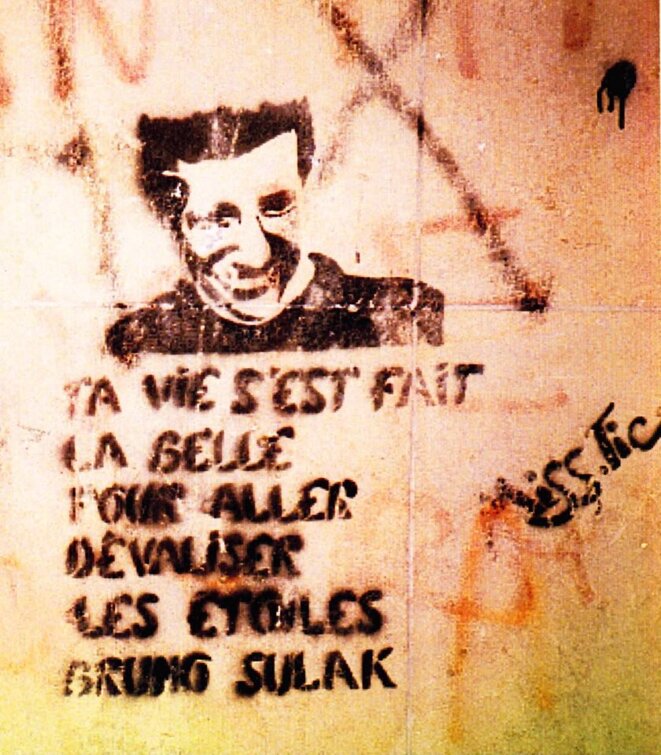 TA ViE S'EST FAiT
LA BELLE
POUR ALLER
DÉVALiSER
LES ETOiLES
BRUNO SULAK
MiSS.TiC